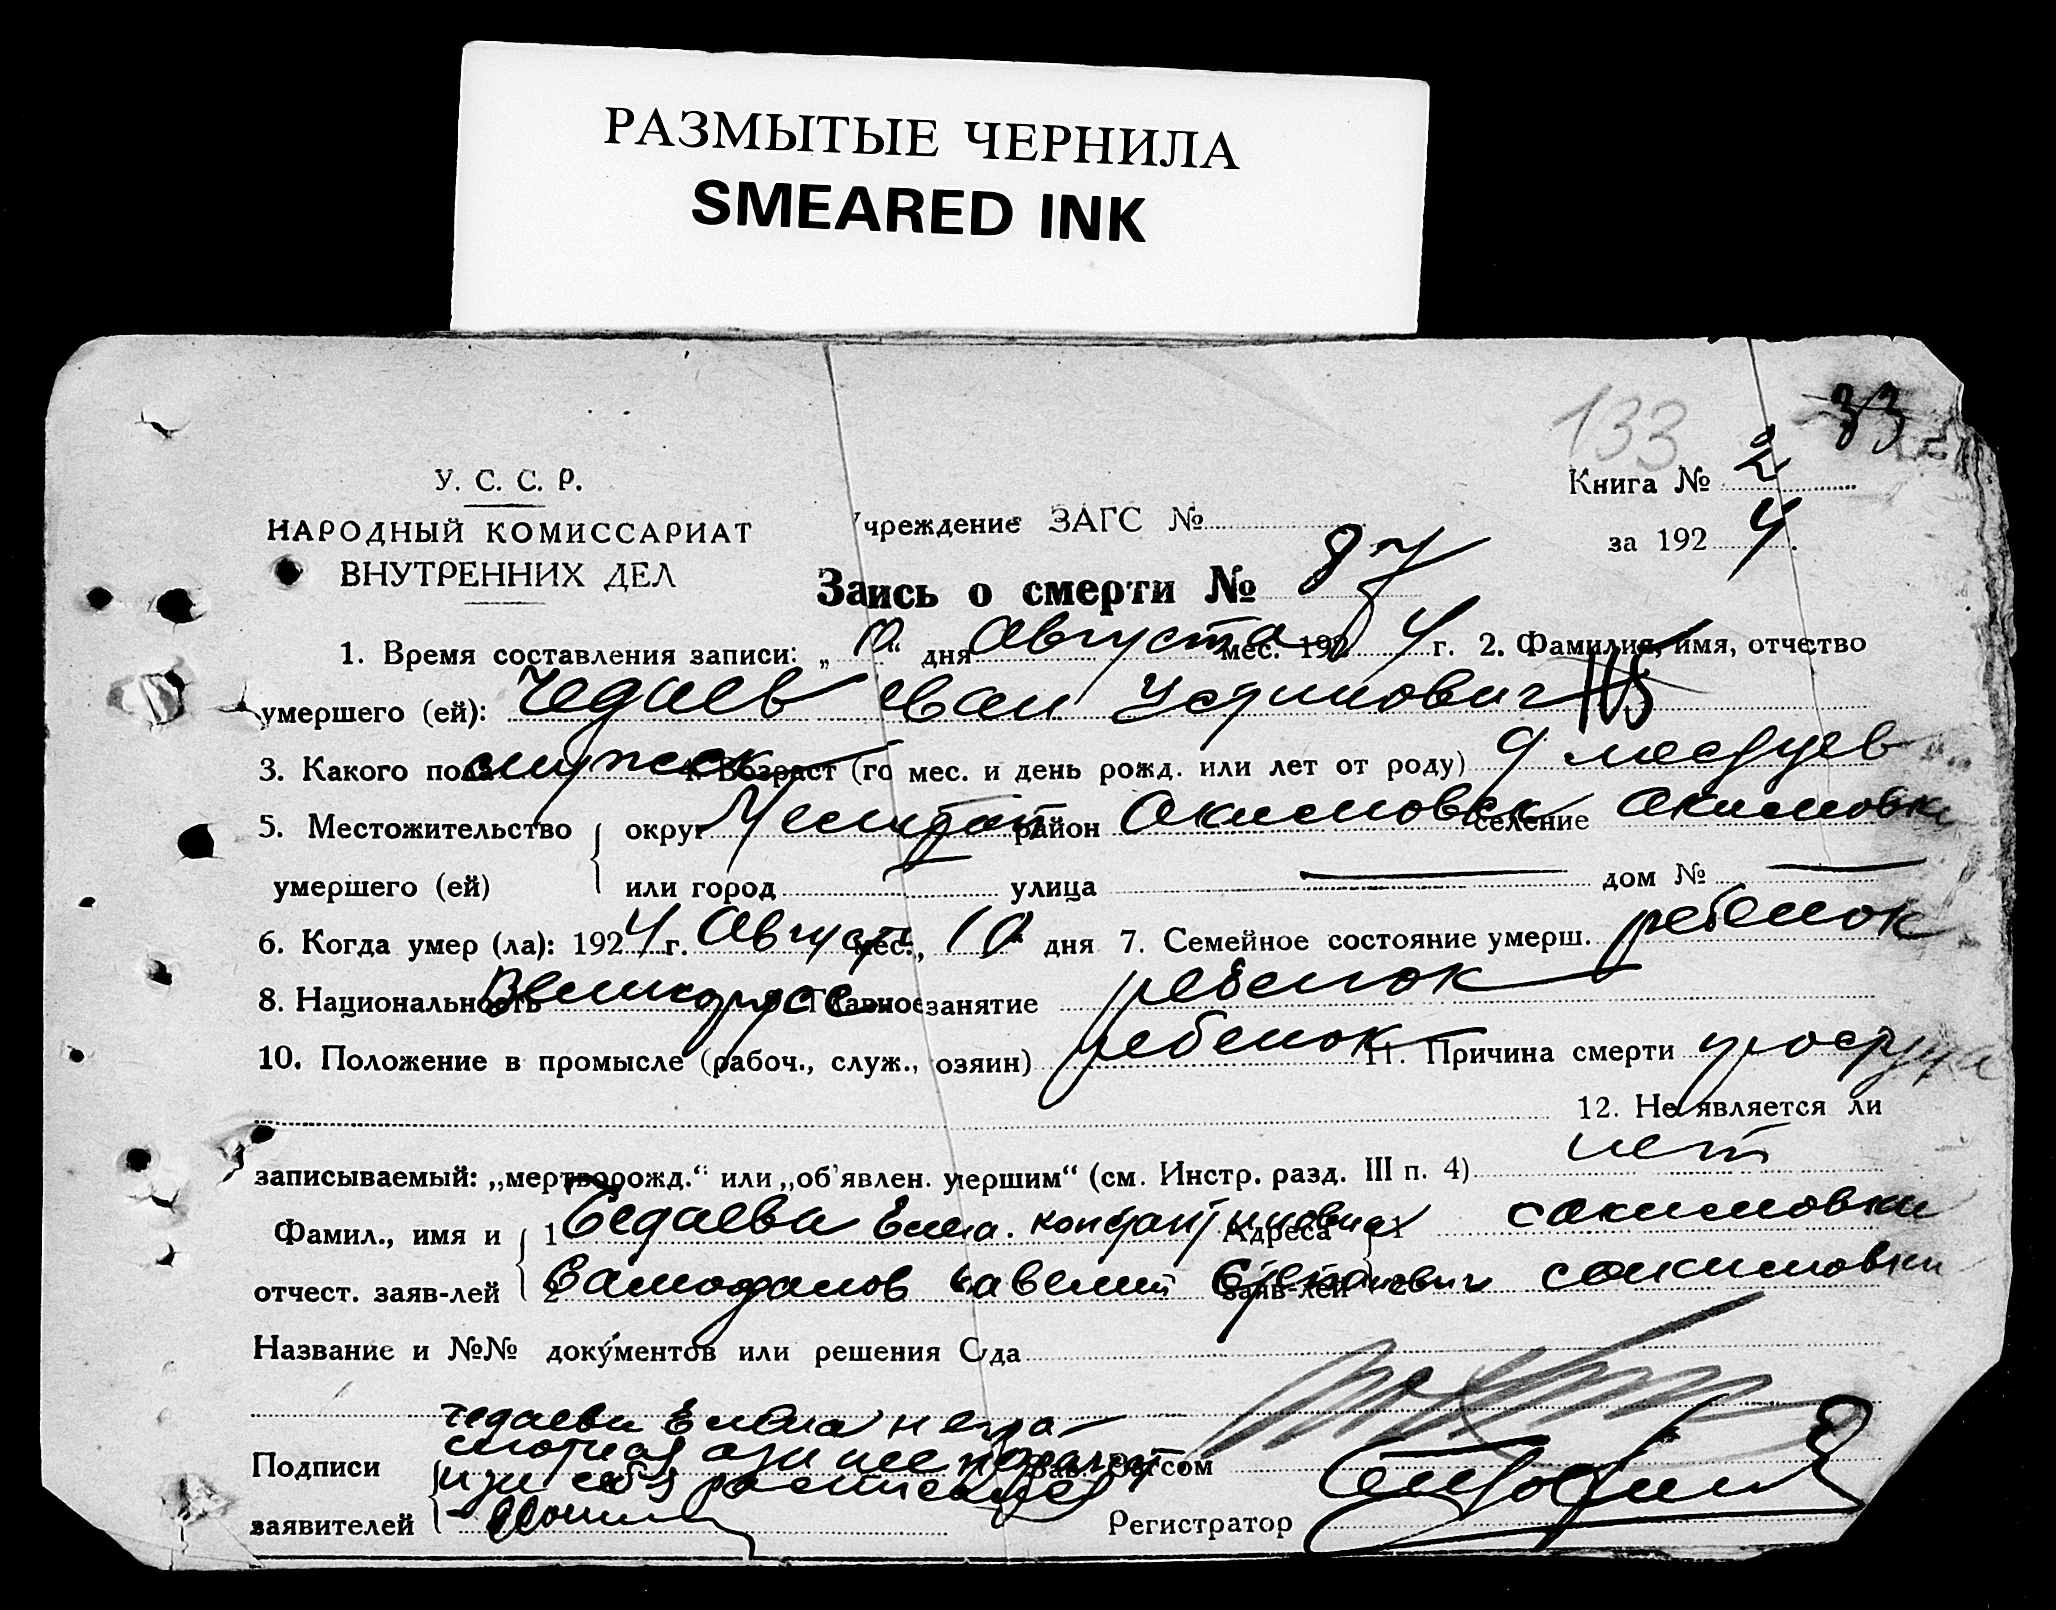 РАЗМЫТЫЕ ЧЕРНИЛА
SMEARED INK
133 33
У. С. С. Р.
НАРОДНЫЙ КОМИССАРИАТ
ВНУТРЕННИХ ДЕЛ
Книга № 2
за 1924.
чреждение ЗАГС №
Заись о смерти № 87
1. Время составления записи: „10“ дня Августа мес. 1924 г. 2. Фамилия, имя, отчество
умершего (ей): Чедаев Иван Устинович 115
3. Какого пола мужск 4. Возраст (го мес. и день рожд. или лет от роду) 9 месяцев
5. Местожительство округ район Акимовск селение Акимовки
умершего (ей) или город улица — дом № —
6. Когда умер (ла): 1924 г. Август мес., 10 дня 7. Семейное состояние умерш. ребенок
8. Национальность Великорос Главное занятие ребенок
10. Положение в промысле (рабоч., служ., озяин) ребенок 11. Причина смерти
12. Не является ли
записываемый: „мертворожд.“ или „об'явлен. умершим“ (см. Инстр. разд. III п. 4) нет
Фамил., имя и 1 Чедаева Елена Константиновна Адреса 1 с Акимовки
отчест. заяв-лей 2 Савелий Степанович заяв-лей с Акимовки
Название и №№ документов или решения Суда
Чедаева Елена негра-
Подписи мотная а Зав. Загсом
расписался
заявителей Регистратор